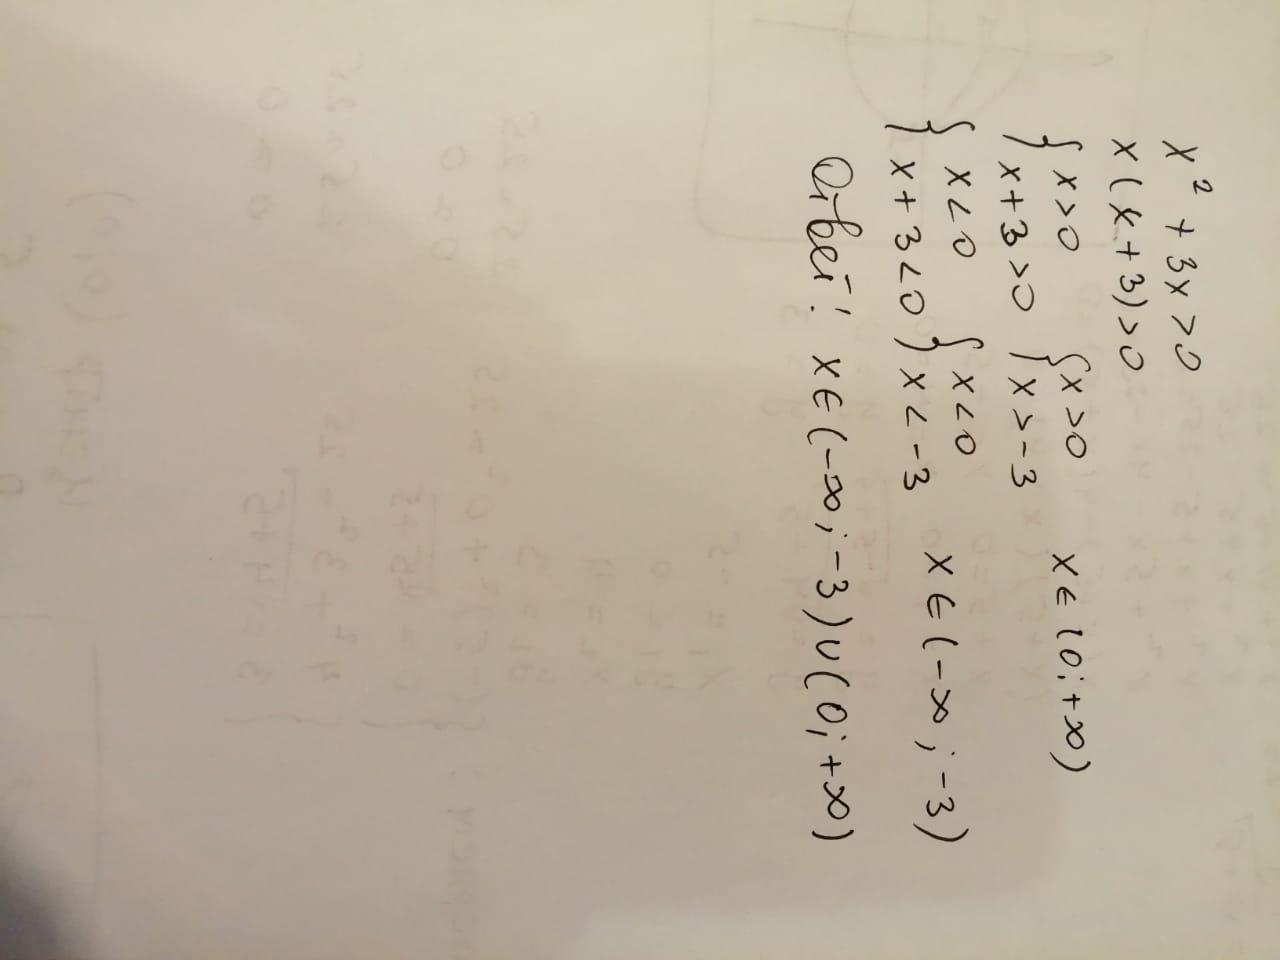 x² + 3x > 0
x(x+3)>0
{ x>0 { x>0 x ∈ (0; +∞)
x+3>0 x>-3
{ x<0 { x<0 x ∈ (-∞; -3)
x+3<0 x<-3
Ответ: x ∈ (-∞; -3) ∪ (0; +∞)